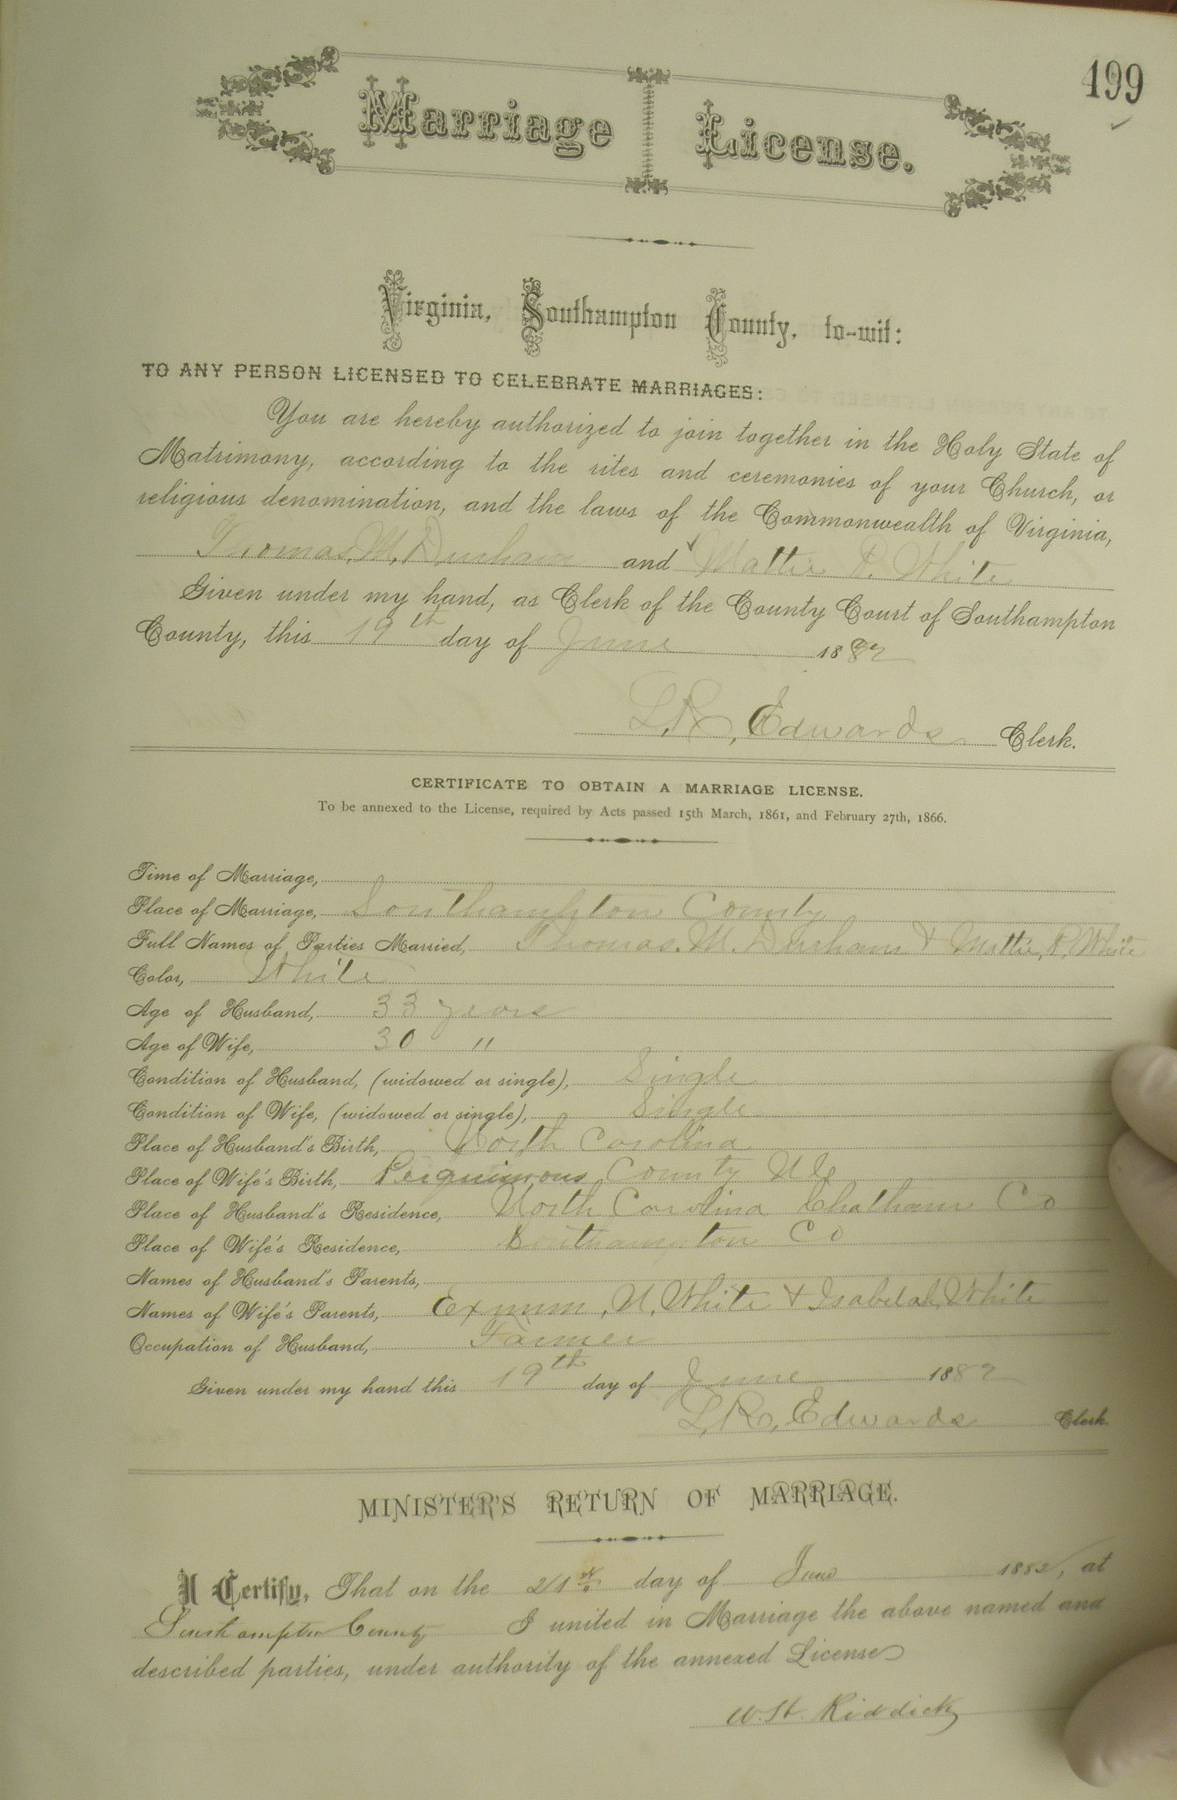 499
Marriage License.
Virginia, Southampton County, to-wit:
TO ANY PERSON LICENSED TO CELEBRATE MARRIAGES:
You are hereby authorized to join together in the Holy State of
Matrimony, according to the rites and ceremonies of your Church, or
religious denomination, and the laws of the Commonwealth of Virginia,
Thomas, M. Durham and Mattie R. White
Given under my hand, as Clerk of the County Court of Southampton
County, this 19th day of June 1882
L. R., Edwards Clerk.
CERTIFICATE TO OBTAIN A MARRIAGE LICENSE.
To be annexed to the License, required by Acts passed 15th March, 1861, and February 27th, 1866.
Time of Marriage,
Place of Marriage, Southampton County
Full Names of Parties Married, Thomas. M. Durham & Mattie, R. White
Color, White
Age of Husband, 33 years
Age of Wife, 30 "
Condition of Husband, (widowed or single), Single
Condition of Wife, (widowed or single), Single
Place of Husband's Birth, North Carolina
Place of Wife's Birth, Perquimous County N C
Place of Husband's Residence, North Carolina Chatham Co
Place of Wife's Residence, Southampton Co
Names of Husband's Parents,
Names of Wife's Parents, Exum, N, White & Isabelah, White
Occupation of Husband, Farmer
Given under my hand this 19th day of June 1882
L, R., Edwards Clerk.
MINISTER'S RETURN OF MARRIAGE.
I Certify, That on the 21st day of June 1882, at
Southampton County I united in Marriage the above named and
described parties, under authority of the annexed License
W. H. Riddick